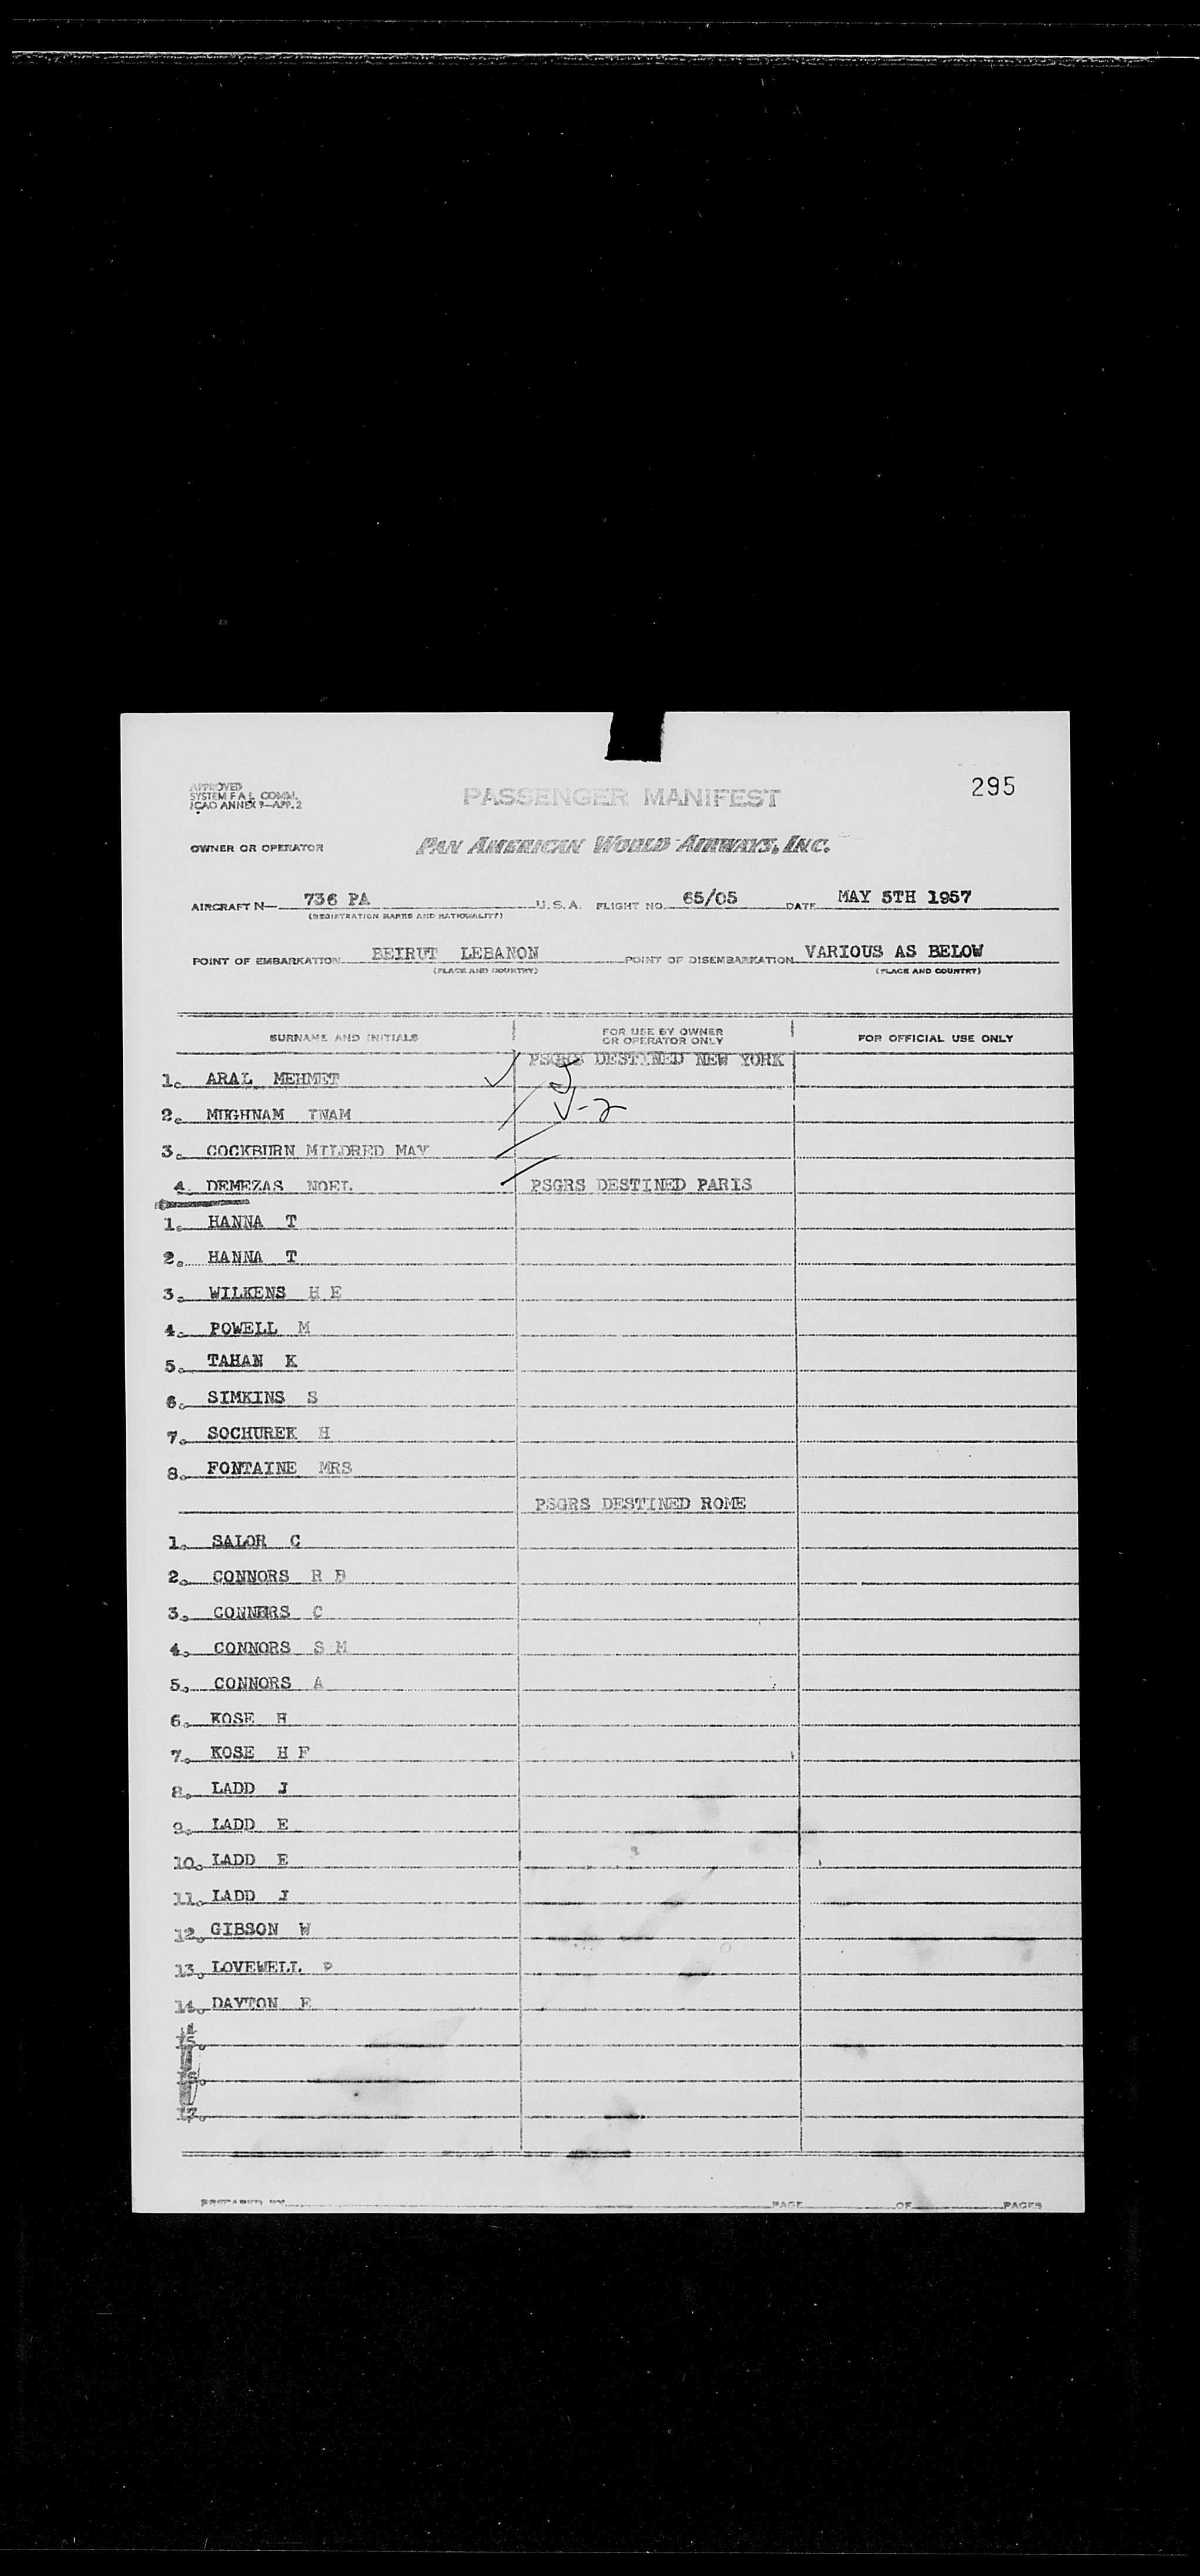 295
APPROVED
SYSTEM F.A.L. COMM.
ICAO ANNEX 9—APP. 2
PASSENGER MANIFEST
OWNER OR OPERATOR PAN AMERICAN WORLD AIRWAYS, INC.
AIRCRAFT N— 736 PA U.S.A. FLIGHT NO. 65/05 DATE MAY 5TH 1957
(REGISTRATION MARKS AND NATIONALITY)
POINT OF EMBARKATION BEIRUT LEBANON POINT OF DISEMBARKATION VARIOUS AS BELOW
(PLACE AND COUNTRY) (PLACE AND COUNTRY)
SURNAME AND INITIALS FOR USE BY OWNER OR OPERATOR ONLY FOR OFFICIAL USE ONLY
PSGRS DESTINED NEW YORK
1. ARAL MEHMET
2. MUGHNAM INAM
V-2
3. COCKBURN MILDRED MAY
4. DEMEZAS NOEL PSGRS DESTINED PARIS
1. HANNA T
2. HANNA T
3. WILKENS H E
4. POWELL M
5. TAHAN K
6. SIMKINS S
7. SOCHUREK H
8. FONTAINE MRS
PSGRS DESTINED ROME
1. SALOR C
2. CONNORS R B
3. CONNERS C
4. CONNORS S M
5. CONNORS A
6. KOSE H
7. KOSE H F
8. LADD J
9. LADD E
10. LADD E
11. LADD J
12. GIBSON W
13. LOVEWELL P
14. DAYTON F
15.
16.
17.
PREPARED BY PAGE OF PAGES